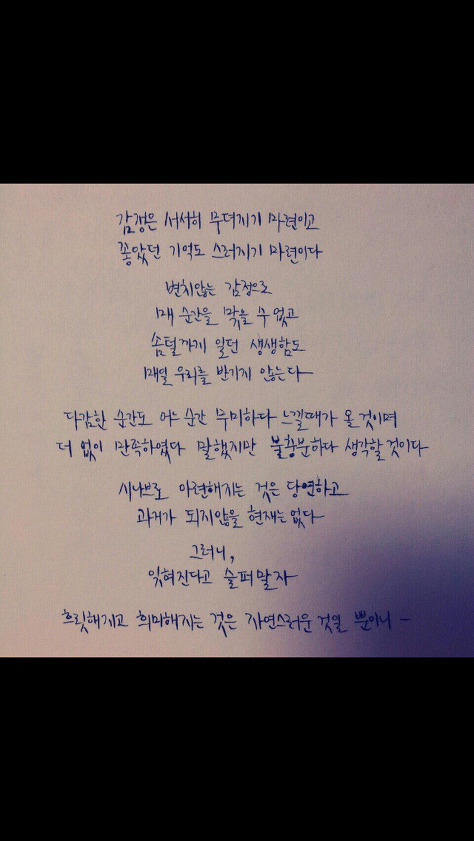 감정은 서서히 무뎌지기 마련이고
꽃았던 기억도 스러지기 마련이다
변치않는 감정으로
매 순간을 맞을 수 없고
솜털까지 일던 생생함도
매일 우리를 반기지 않는다
다감한 순간도 어느 순간 무미하다 느낄때가 올 것이며
더 없이 만족하였다 말했지만 불충분하다 생각할 것이다
시나브로 아련해지는 것은 당연하고
과거가 되지않을 현재는 없다
그러니,
잊혀진다고 슬퍼말자
흐릿해지고 희미해지는 것은 자연스러운 것일 뿐이니 -